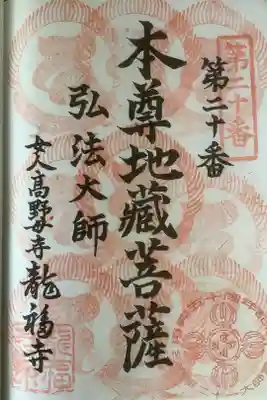 第二十番
第二十番
本尊地蔵菩薩
弘法大師
女人高野母寺龍福寺